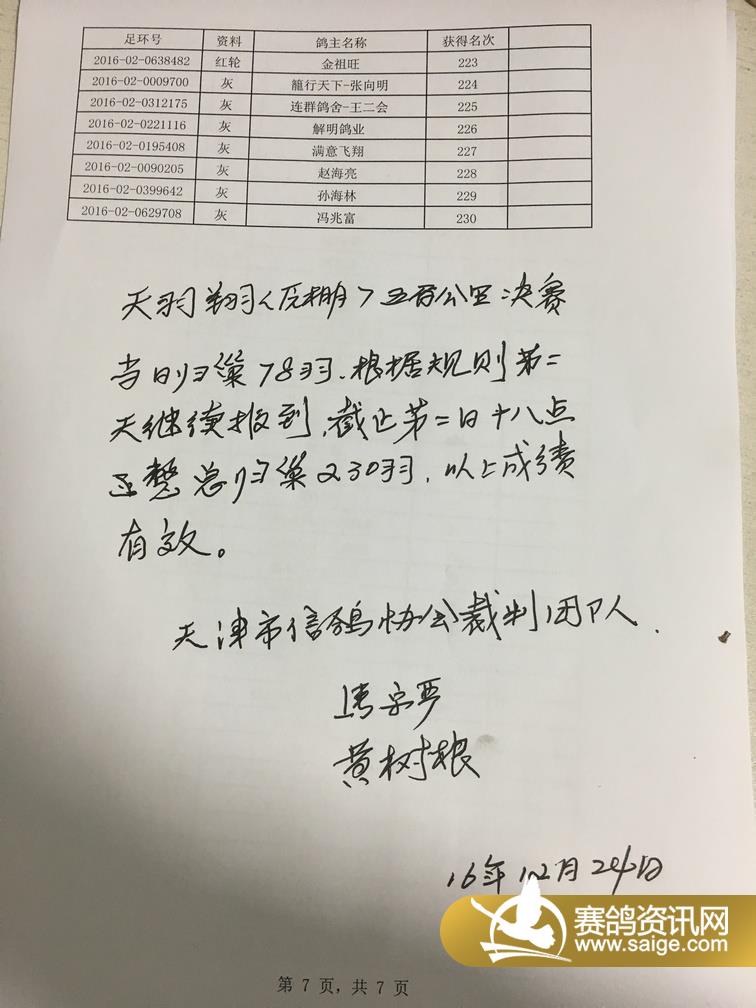 足环号 资料 鸽主名称 获得名次
2016-02-0638482 红轮 金祖旺 223
2016-02-0009700 灰 龍行天下-张向明 224
2016-02-0312175 灰 连群鸽舍-王二会 225
2016-02-0221116 灰 解明鸽业 226
2016-02-0195408 灰 满意飞翔 227
2016-02-0090205 灰 赵海亮 228
2016-02-0399642 灰 孙海林 229
2016-02-0629708 灰 冯兆富 230
天羽翔 五百公里决赛
当日归巢78羽.根据规则第二
天继续报到,截止第二日十八点
总归巢230羽,以上成绩
有效。
天津市信鸽协会裁判团队
黄树根
16年12月24日
赛鸽资讯网
www.saige.com
第 7 页,共 7 页